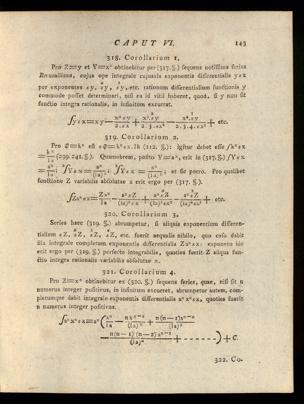 CAPUT VI. 143
318. Corollarium 1.
Pro Z=y et Y=xⁿ obtinebitur per (317. §.) sequens notissima series
Bernoulliana, cujus ope integrale cujusvis exponentis differentialis yεx
per exponentes εy, ε²y, ε³y, etc. rationum differentialium functionis y
commode posset determinari, nisi ea id vitii haberet, quod, si y non sit
functio integra rationalis, in infinitum excurrat.
∫yεx = xy − x²εy/2.εx + x³.ε²y/2.3.εx² − x⁴.ε³y/2.3.4.εx³ + etc.
319. Corollarium 2.
Pro Φ=kˣ est εΦ=kˣεx.lk (112. §.): igitur debet esse ∫kˣεx
(299. 241. §.). Quamobrem, posito Y=aˣ, erit in (317. §.) ∫Yεx
et sic porro. Pro qualibet
functione Z variabilis absolutae x erit ergo per (317. §.)
320. Corollarium 3.
Series haec (319. §.) abrumpetur, si aliquis exponentium differen-
tialium εZ, ε²Z, ε³Z, ε⁴Z, etc. fuerit aequalis nihilo, quo casu dabit
illa integrale completum exponentis differentialis Zaˣεx: exponens ido
erit ergo per (319. §.) perfecte integrabilis, quoties fuerit Z aliqua fun-
ctio integra rationalis variabilis absolutae x.
321. Corollarium 4.
Pro Z=xⁿ obtinebitur ex (320. §.) sequens series, quae, nisi sit n
numerus integer positivus, in infinitum excurret, abrumpetur autem, com-
pletumque dabit integrale exponentis differentialis aˣxⁿεx, quoties fuerit
n numerus integer positivus.
∫aˣxⁿεx = aˣ(xⁿ/la − nxⁿ⁻¹/(la)² + n(n−1)xⁿ⁻²/(la)³
− n(n−1)(n−2)xⁿ⁻³/(la)⁴ + - - - - - -) + C.
322. Co-